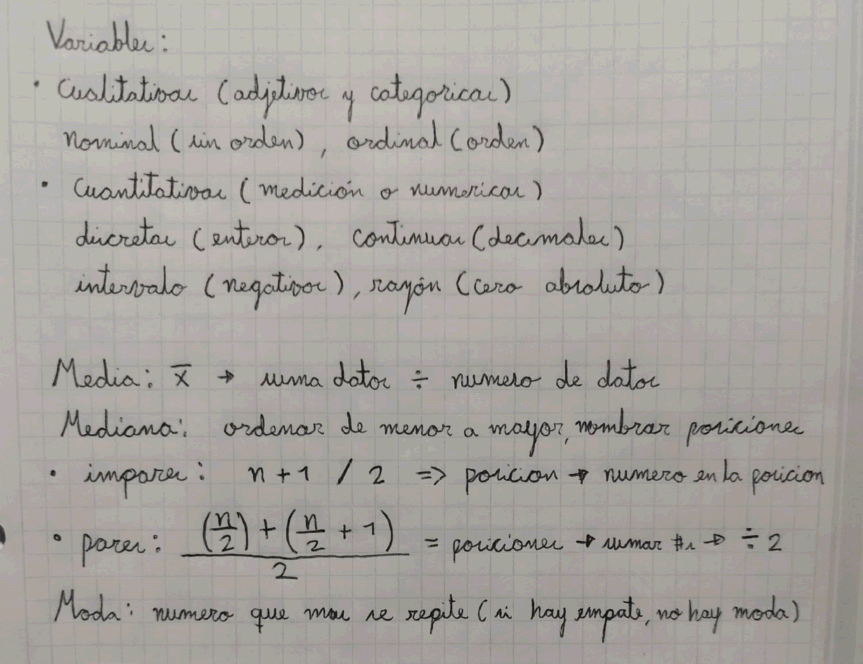 Variables:
• Cualitativas (adjetivos y categoricas)
nominal (sin orden), ordinal (orden)
• Cuantitativas (medición o numericas)
discretas (enteros), continuas (decimales)
intervalo (negativos), razón (cero absoluto)
Media: x̅ → suma datos ÷ numero de datos
Mediana: ordenar de menor a mayor, nombrar posiciones
• impares: n + 1 / 2 => posicion → numero en la posicion
• pares: ((n/2) + (n/2 + 1)) / 2 = posiciones → sumar #s → ÷ 2
Moda: numero que mas se repite (si hay empate, no hay moda)